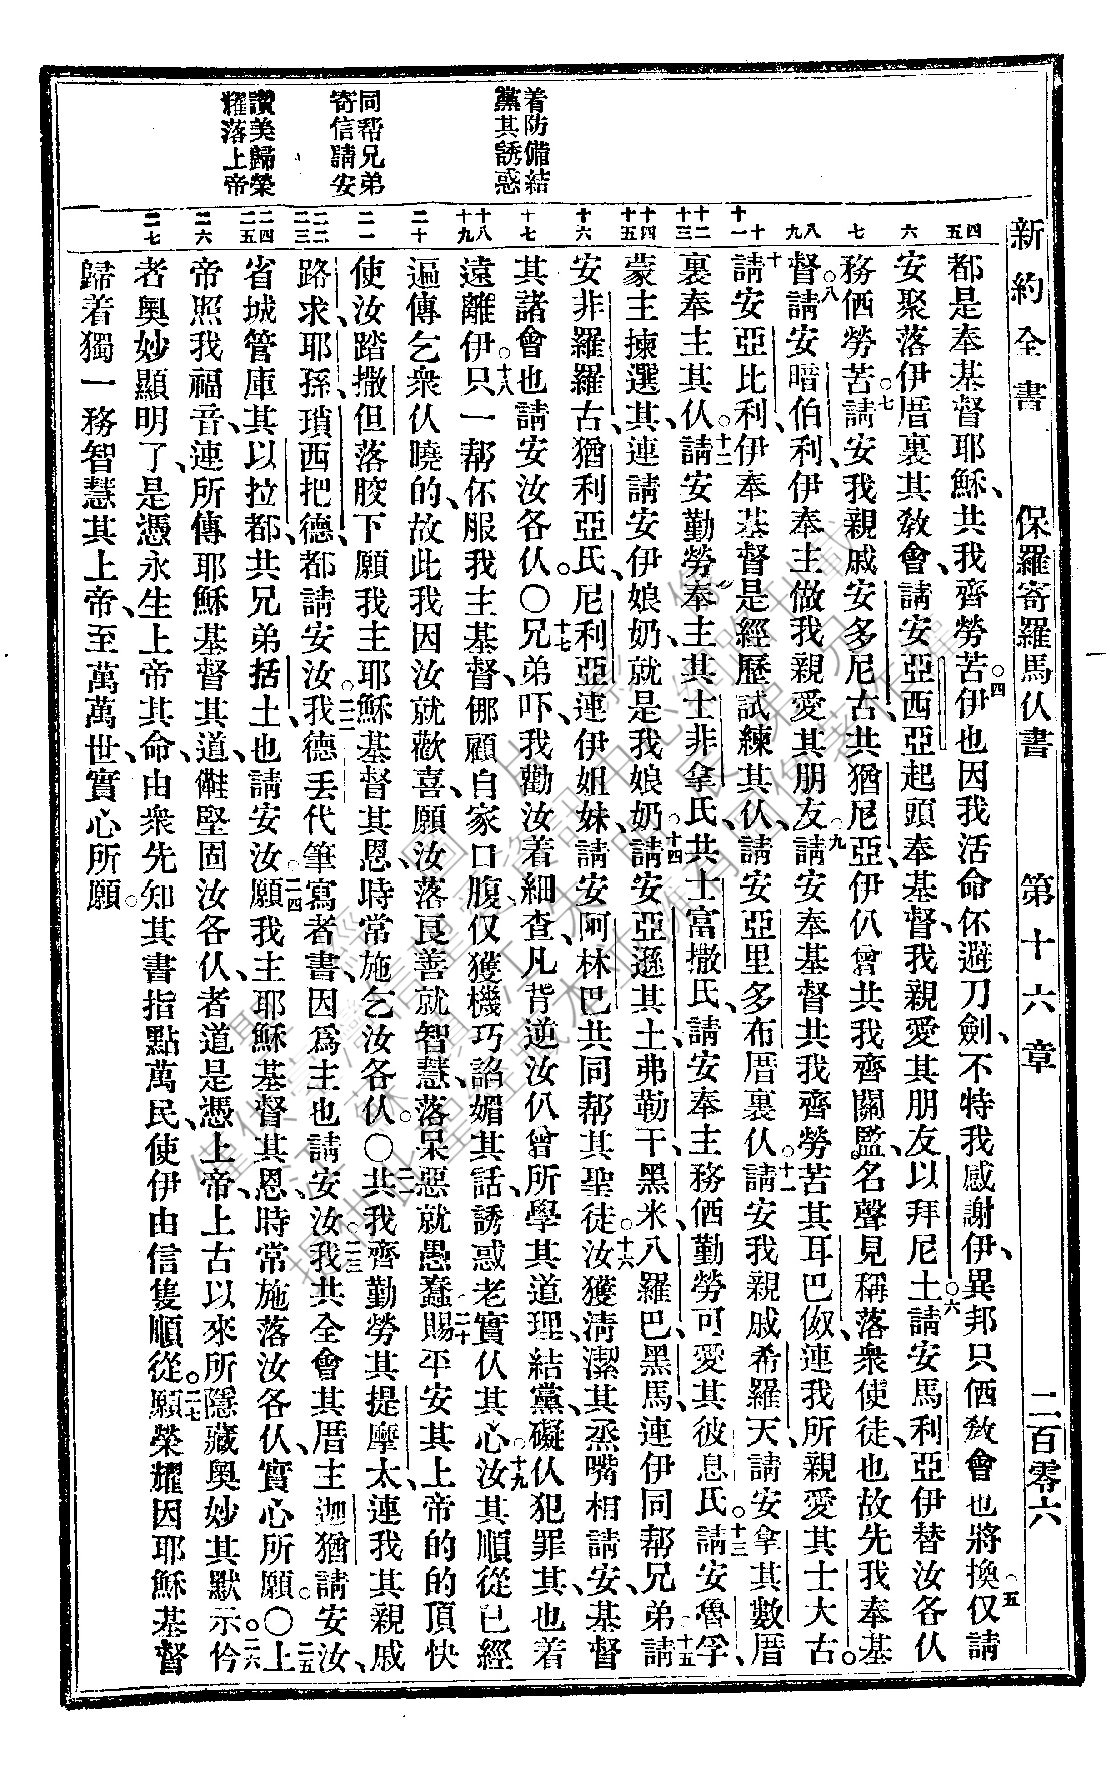 新約全書　保羅寄羅馬仫書　第十六章　二百零六
着防備結
黨其誘惑
同帮兄弟
寄信請安
讚美歸榮
耀落上帝
都是奉基督耶穌、共我齊勞苦。四伊也因我活命、伓避刀劍、不特我感謝伊、異邦只㑚教會也將換。五仅請
安聚落伊厝裏其教會、請安亞西亞起頭奉基督、我親愛其朋友以拜尼土。六請安馬利亞、伊替汝各仫
務㑚勞苦。七請安我親戚安多尼古、共猶尼亞、伊仈曾共我齊關監、名聲見稱落衆使徒、也故先我奉基
督。八請安暗伯利、伊奉主做我親愛其朋友。九請安奉基督共我齊勞苦其耳巴伮、連我所親愛其士大古。
十請安亞比利、伊奉基督是經歷試練其仫、請安亞里多布厝裏仫。十一請安我親戚希羅天、請安拿其數厝
裏奉主其仫。十二請安勤勞奉主其士非拿氏、共士富撒氏、請安奉主務㑚勤勞可愛其彼息氏。十三請安魯孚、
蒙主揀選其、連請安伊娘奶、就是我娘奶。十四請安亞遜其土、弗勒干、黑米、八羅巴、黑馬、連伊同帮兄弟。十五請
安非羅羅古、猶利亞氏、尼利亞、連伊姐妹、請安阿林巴、共同帮其聖徒。十六汝獲淸潔其烝嘴相請安、基督
其諸會也請安汝各仫。〇十七兄弟吓、我勸汝着細查、凡背逆汝仈曾所學其道理、結黨、礙仫犯罪其、也着
遠離伊。十八只一帮伓服我主基督、㑚顧自家口腹、仅獲機巧諂媚其話、誘惑老實仫其心。十九汝其順從、已經
遍傳乞衆仫曉的、故此我因汝就歡喜、願汝落良善就智慧、落呆惡就愚蠢。二十賜平安其上帝的的頂快
使汝踏撒但落骹下、願我主耶穌基督其恩、時常施乞汝各仫。〇二一共我齊勤勞其提摩太、連我其親戚
路求、耶孫、瑣西把德、都請安汝。二二我德丟代筆寫者書、因爲主也請安汝。二三我共全會其厝主迦猶請安汝、
省城管庫其以拉都、共兄弟括土、也請安汝。二四願我主耶穌基督其恩、時常施落汝各仫、實心所願。〇二五上
帝照我福音、連所傳耶穌基督其道、儺堅固汝各仫、者道是憑上帝、上古以來所隱藏奧妙其默示。二六仱
者奧妙顯明了、是憑永生上帝其命、由衆先知其書指點萬民、使伊由信隻順從。二七願榮耀因耶穌基督
歸着獨一務智慧其上帝、至萬萬世、實心所願。